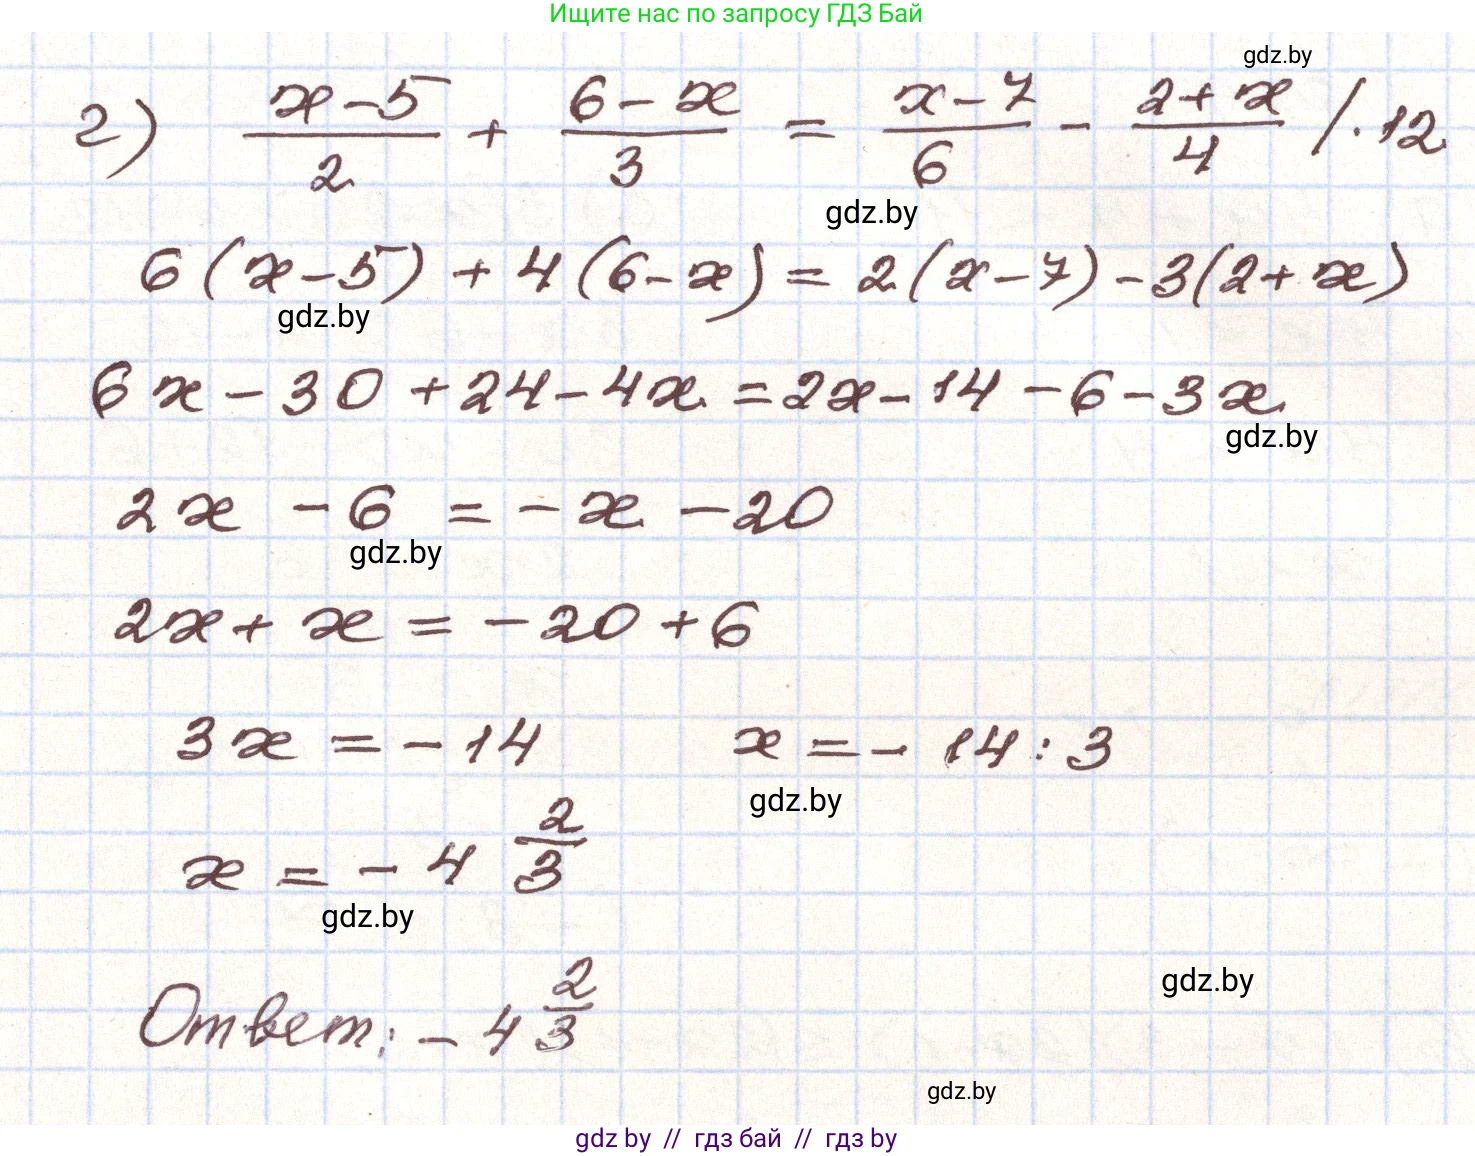 Ищите нас по запросу ГДЗ Бай
gdz.by
г) (x-5)/2 + (6-x)/3 = (x-7)/6 - (2+x)/4 /·12
gdz.by
6(x-5)+4(6-x)=2(x-7)-3(2+x)
gdz.by
6x-30+24-4x=2x-14-6-3x
gdz.by
2x -6 = -x -20
gdz.by
2x+x=-20+6
3x=-14 x=-14:3
gdz.by
x=-4 2/3
gdz.by
gdz.by
Ответ: -4 2/3
gdz.by
gdz by // гдз бай // гдз by